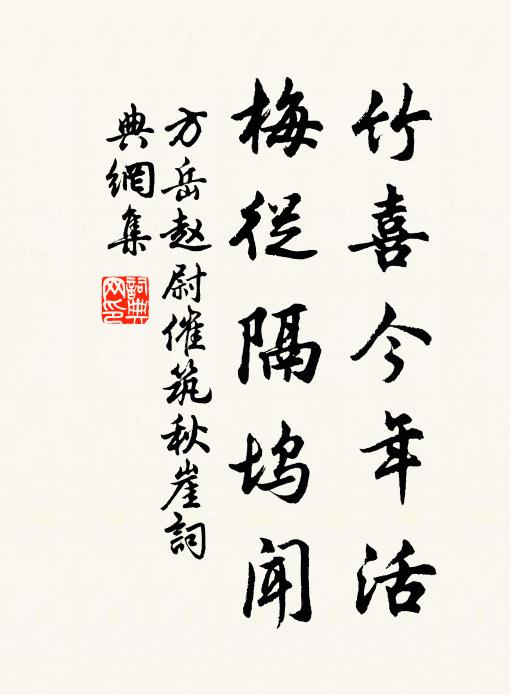 竹喜今年活
梅從隔坞闻
方岳赵尉催筑秋崖詞
典網集
詞典网印